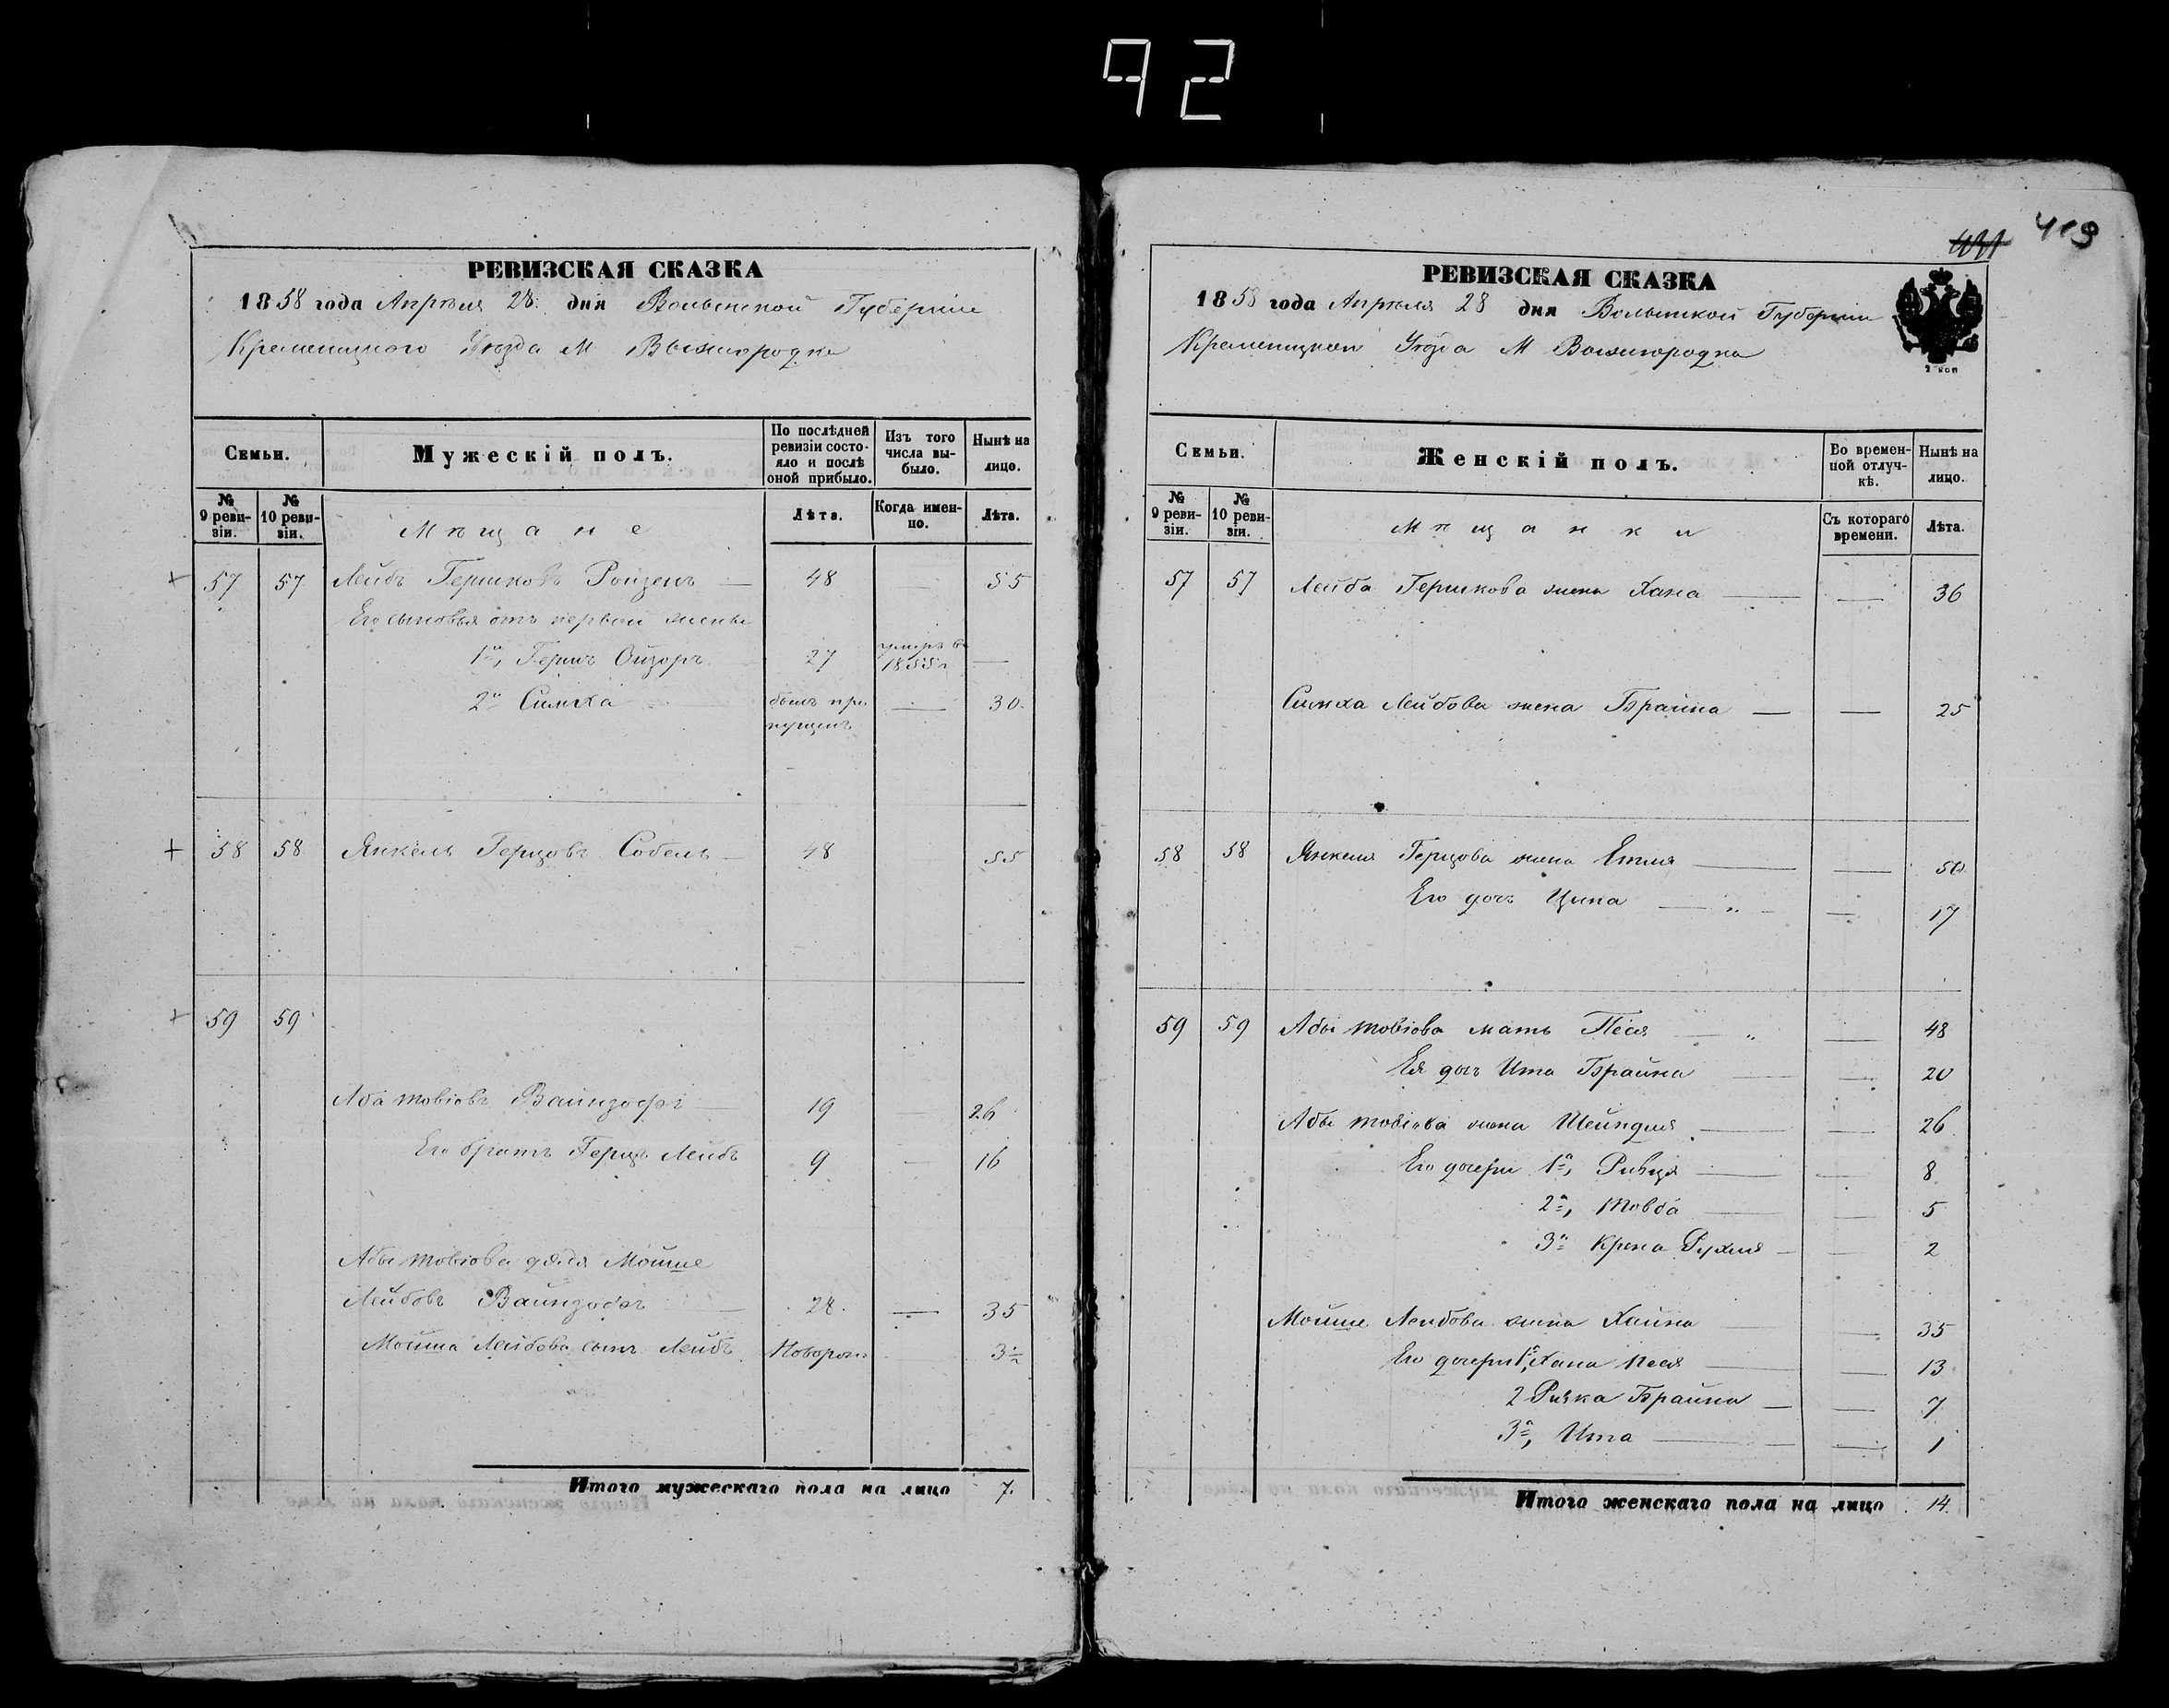 92
РЕВИЗСКАЯ СКАЗКА
1858 года Апрѣля 28 дня Волынской Губерніи
Кременецкого Уѣзда М Вышгородка
Семьи.
Мужескій полъ.
По послѣдней ревизіи состояло и послѣ оной прибыло.
Изъ того числа выбыло.
Нынѣ на лицо.
№ 9 ревизіи.
№ 10 ревизіи.
Мѣщане
Лѣта.
Когда именно.
Лѣта.
57 57 Лейбъ Гершковъ Ройзенъ — 48 — 55
Его сыновья отъ первой жены
1й, Гершъ Ойзоръ 27 умеръ въ 1855 г —
2й Симха былъ пропущенъ — 30
58 58 Янкель Герцовъ Собель — 48 55
59 59
Аба Товіовъ Вайнзофъ — 19 — 26
Его братъ Герцъ Лейбъ 9 — 16
Абы Товіова дядя Мойше
Лейбовъ Вайнзофъ — 28 — 35
Мойша Лейбова сынъ Лейбъ Новорож: 3½
Итого мужескаго пола на лицо 7.
419
РЕВИЗСКАЯ СКАЗКА
1858 года Апрѣля 28 дня Волынской Губерніи
Кременецкого Уѣзда М Вышгородка
2 коп
Семьи.
Женскій полъ.
Во временной отлучкѣ.
Нынѣ на лицо.
№ 9 ревизіи.
№ 10 ревизіи.
Мѣщанки
Съ котораго времени.
Лѣта.
57 57 Лейба Гершкова жена Хана — — 36
Симха Лейбова жена Брайна — — 25
58 58 Янкеля Герцова жена Етля — — 50
Его дочь Ципа — — 17
59 59 Абы Товіова мать Песя — — 48
Ея дочь Ита Брайна — — 20
Абы Товіова жена Шейндля — — 26
Его дочери 1я, Ривця — — 8
2я, Товба — — 5
3я Крена Рухля — — 2
Мойше Лейбова жена Хайка — — 35
Его дочери 1я, Хана Песя — — 13
2 Ривка Брайна — — 7
3я, Ита — — 1
Итого женскаго пола на лицо 14.